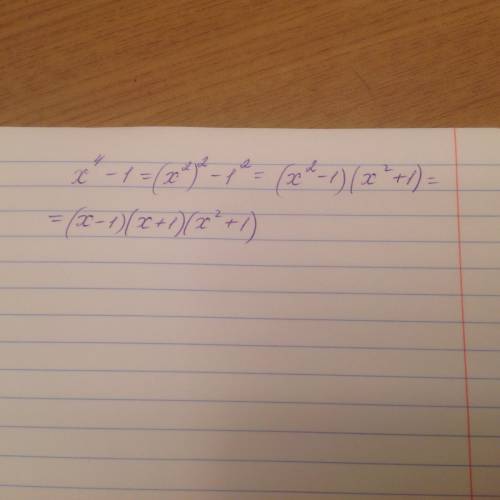 x⁴ - 1 = (x²)² - 1² = (x² - 1)(x² + 1) =
= (x - 1)(x + 1)(x² + 1)